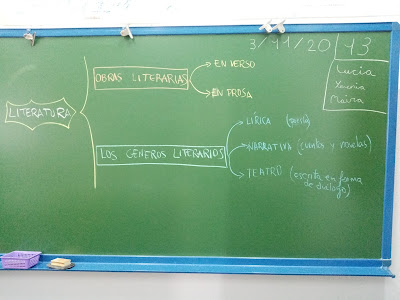 3/11/2013
Lucía
Maira
LITERATURA
OBRAS LITERARIAS
EN VERSO
EN PROSA
LOS GENEROS LITERARIOS
LÍRICA (poesía)
NARRATIVA (cuentos y novelas)
TEATRO (escrita en forma
de diálogo)